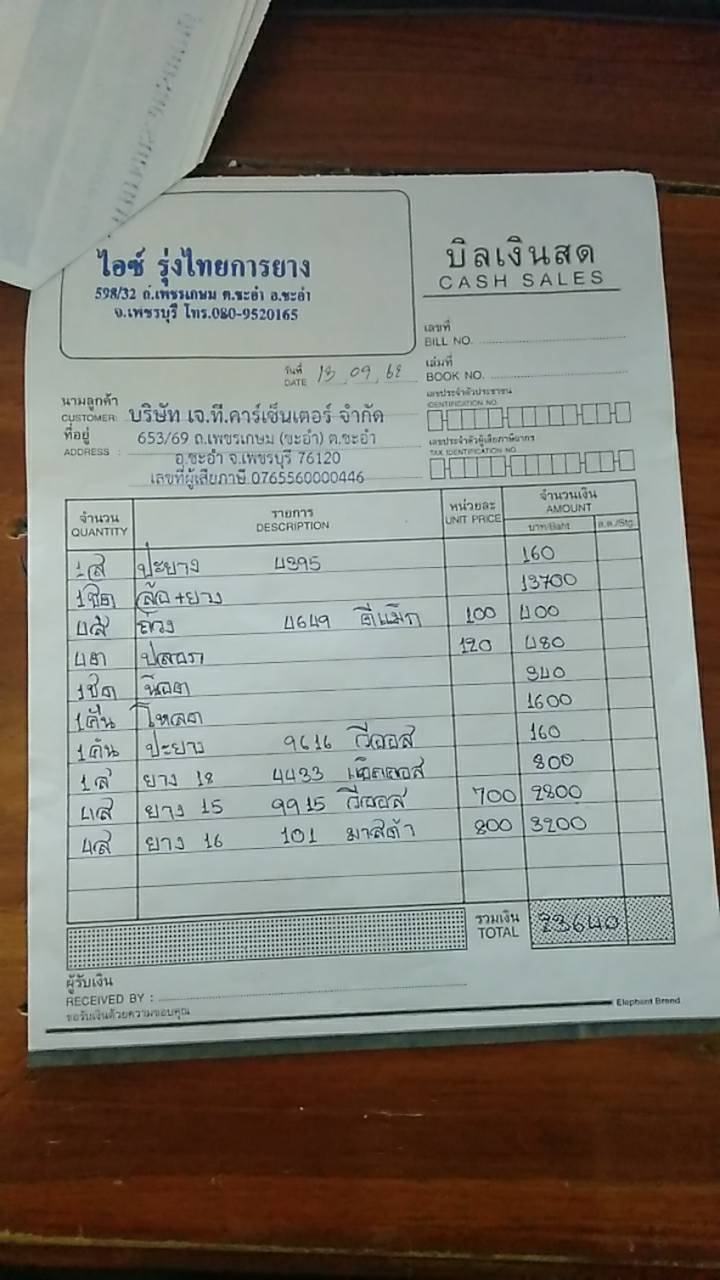 ไอซ์ รุ่งไทยการยาง
598/32 ถ.เพชรเกษม ต.ชะอำ อ.ชะอำ
จ.เพชรบุรี โทร.080-9520165
บิลเงินสด
CASH SALES
เลขที่
BILL NO.
วันที่
DATE 13 09 68
เล่มที่
BOOK NO.
นามลูกค้า
CUSTOMER: บริษัท เจ.ที.คาร์เซ็นเตอร์ จำกัด
เลขประจำตัวประชาชน
IDENTIFICATION NO.
ที่อยู่
ADDRESS : 653/69 ถ.เพชรเกษม (ชะอำ) ต.ชะอำ
อ.ชะอำ จ.เพชรบุรี 76120
เลขประจำตัวผู้เสียภาษีอากร
TAX IDENTIFICATION NO.
เลขที่ผู้เสียภาษี.0765560000446
จำนวน รายการ หน่วยละ จำนวนเงิน
QUANTITY DESCRIPTION UNIT PRICE AMOUNT
บาท/Baht ส.ต./Stg.
1ส ปะยาง 4395 160
1ชุด ล้อ+ยาง 13700
4ส ถ่วง 4649 ดีแม็ก 100 400
4ต ปลอก 120 480
1ชุด น๊อต 340
1คัน โหลด 1600
1คัน ปะยาง 9616 วีออส 160
1ส ยาง 18 4433 800
4ส ยาง 15 9915 วีออส 700 2800
4ส ยาง 16 101 มาสด้า 800 3200
รวมเงิน
TOTAL 23640
ผู้รับเงิน
RECEIVED BY :
ขอรับเงินด้วยความขอบคุณ
Elephant Brand